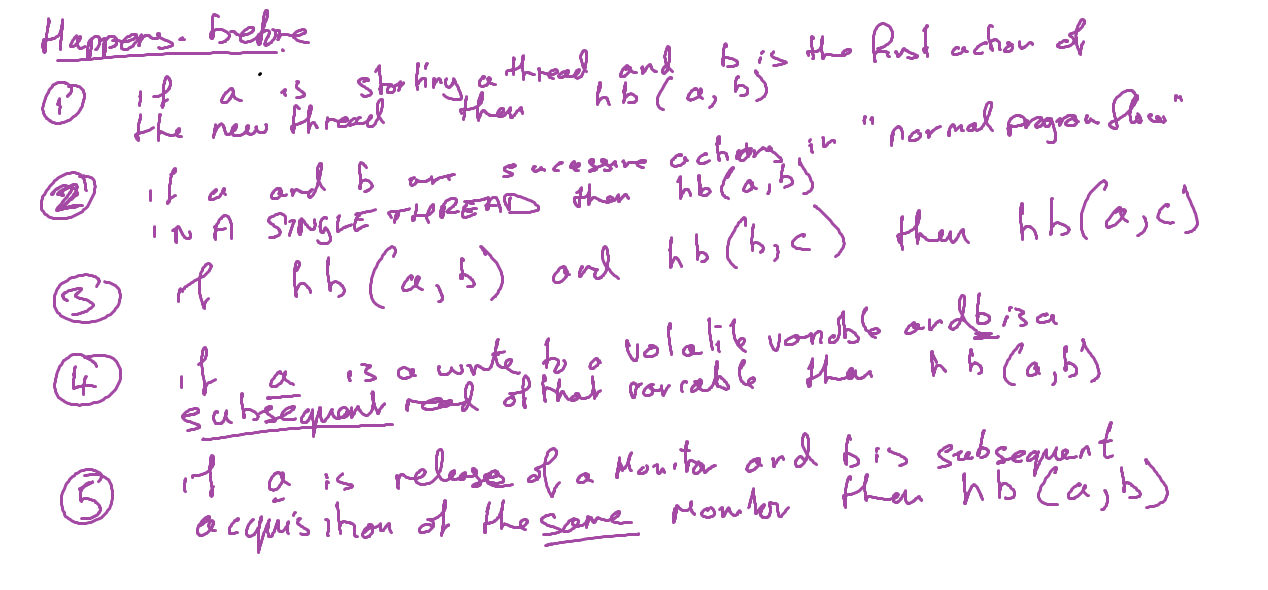 Happens-before
① if a is starting a thread and b is the first action of
the new thread then hb(a,b)
② if a and b are sucessive actions in "normal program flow"
IN A SINGLE THREAD then hb(a,b)
③ if hb(a,b) and hb(b,c) then hb(a,c)
④ if a is a write to a volatile variable and b is a
subsequent read of that variable then hb(a,b)
⑤ if a is release of a Monitor and b is subsequent
acquisition of the same Monitor then hb(a,b)